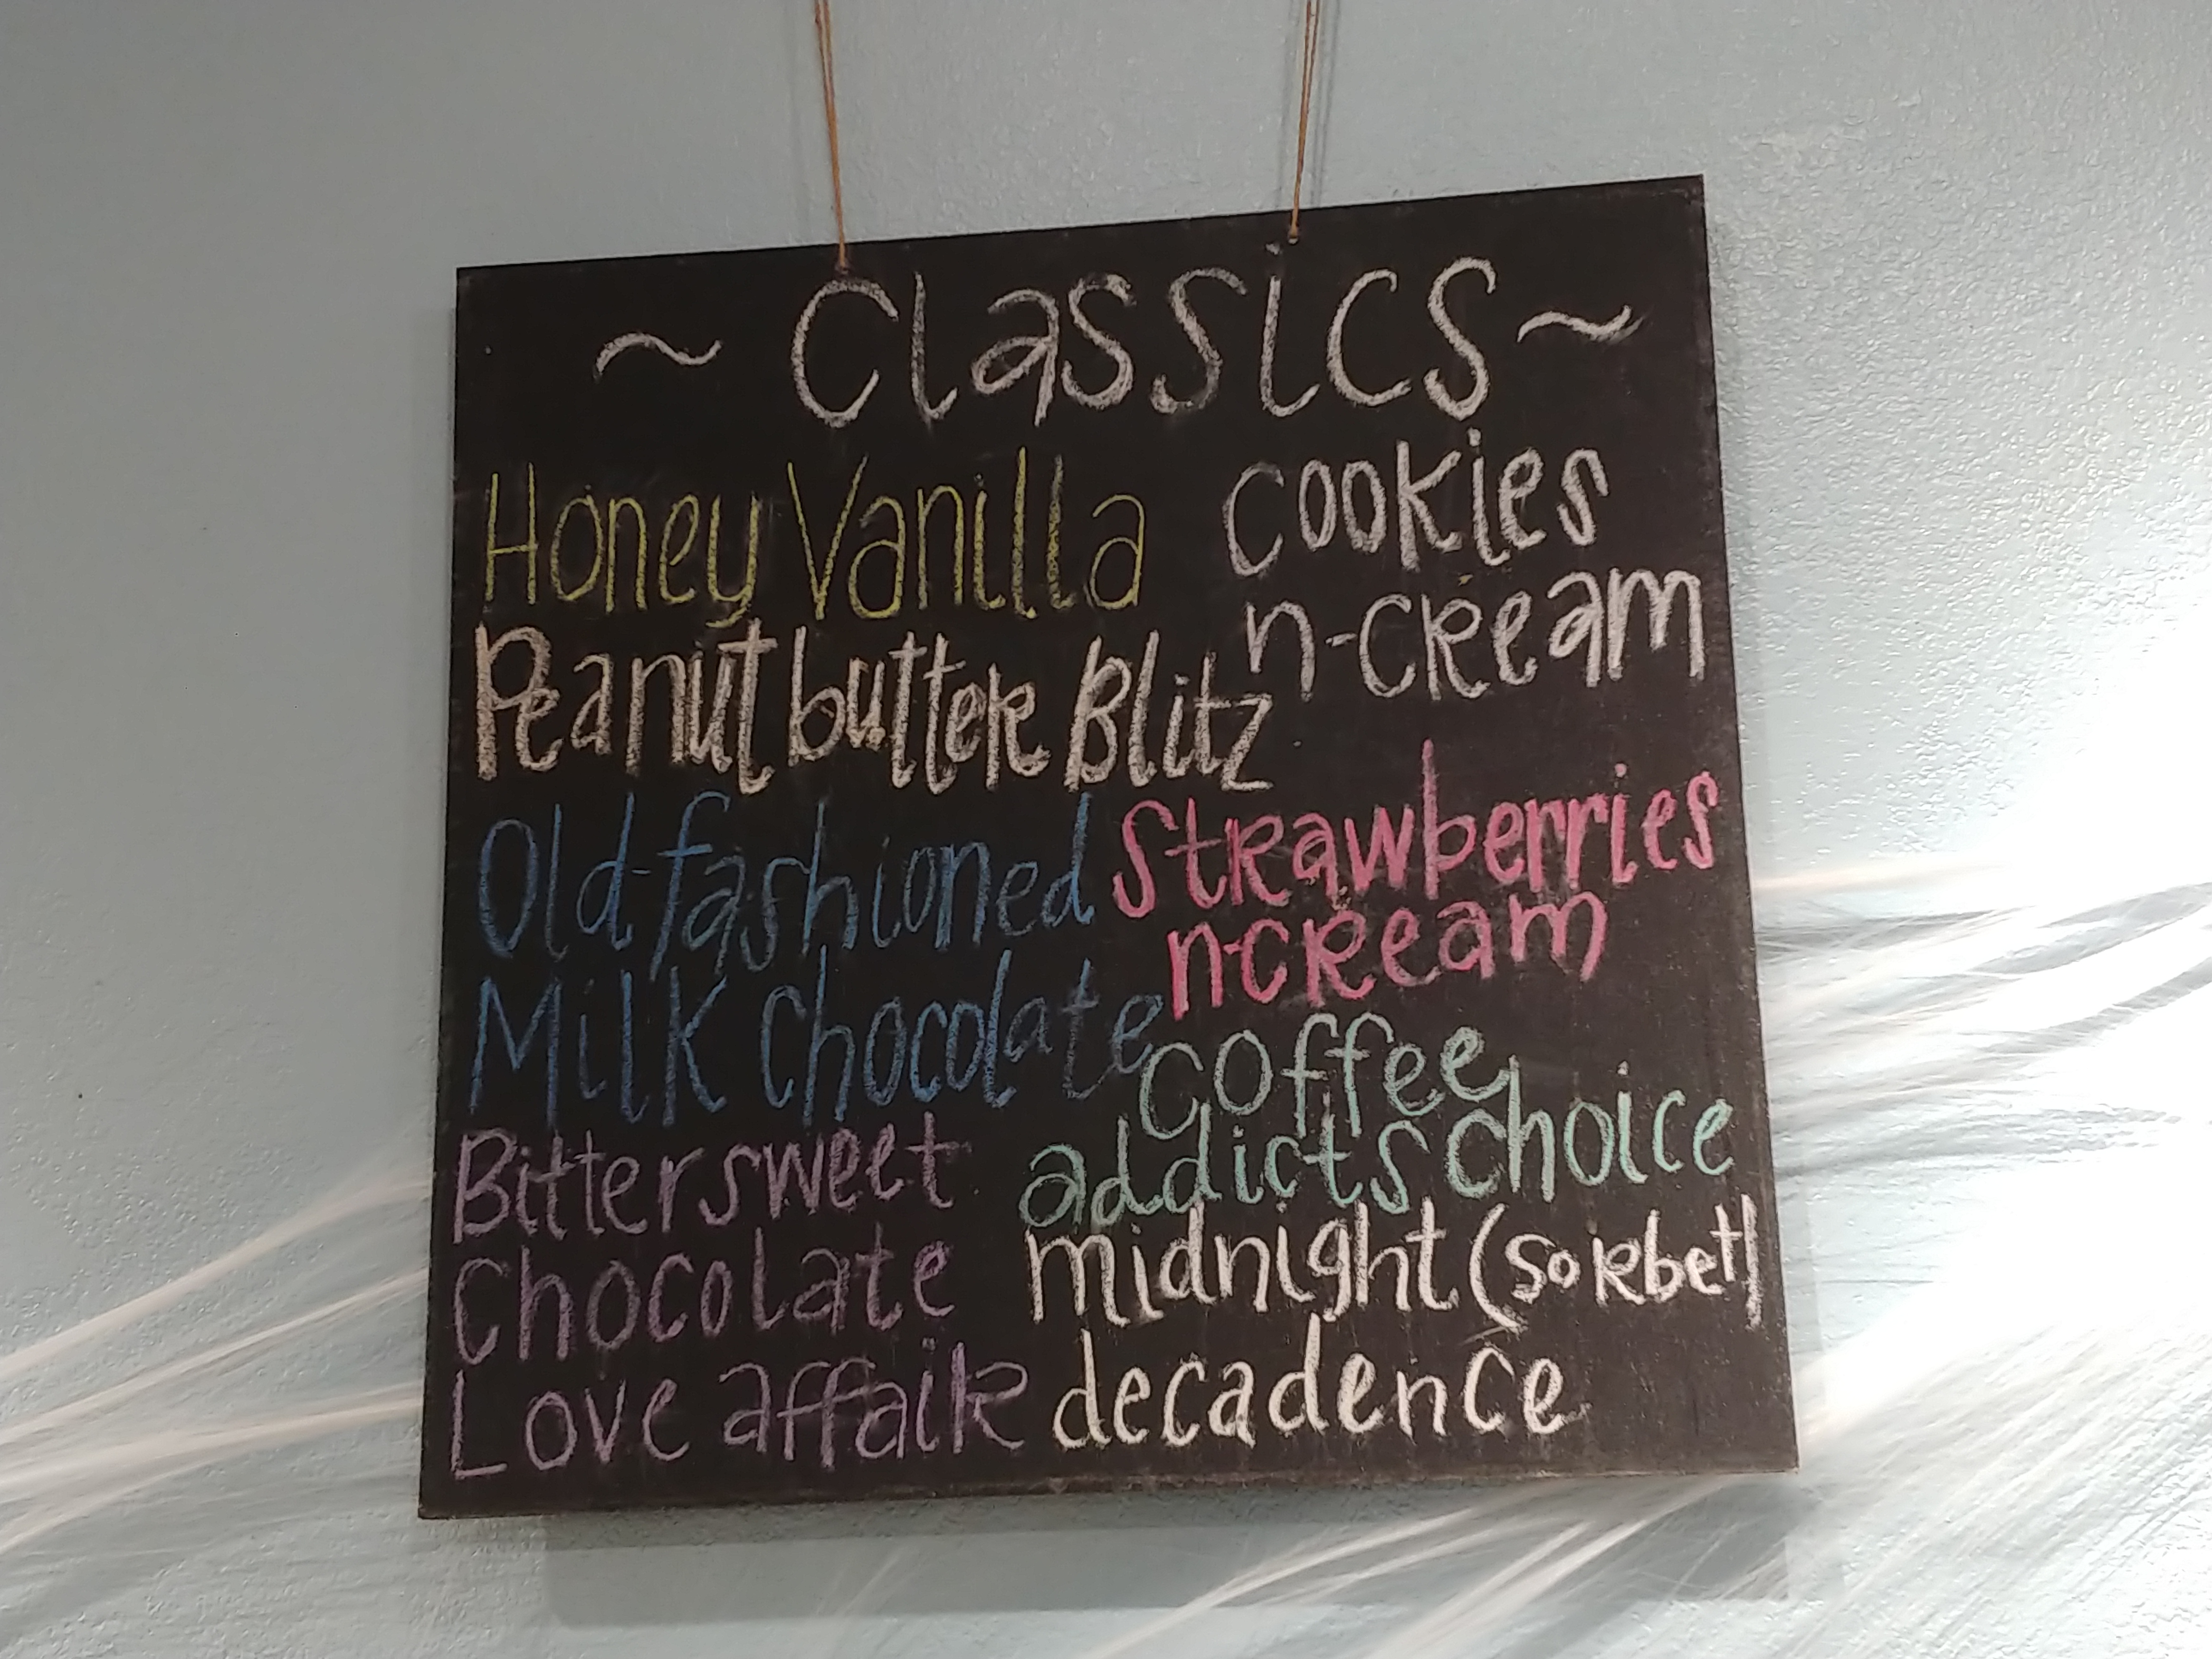 ~ Classics ~
Honey Vanilla
Peanut butter Blitz
Old-fashioned
Milk Chocolate
Bittersweet
Chocolate
Love affair
Cookies
n-cream
Strawberries
n-cream
Coffee
addicts choice
midnight (sorbet)
decadence